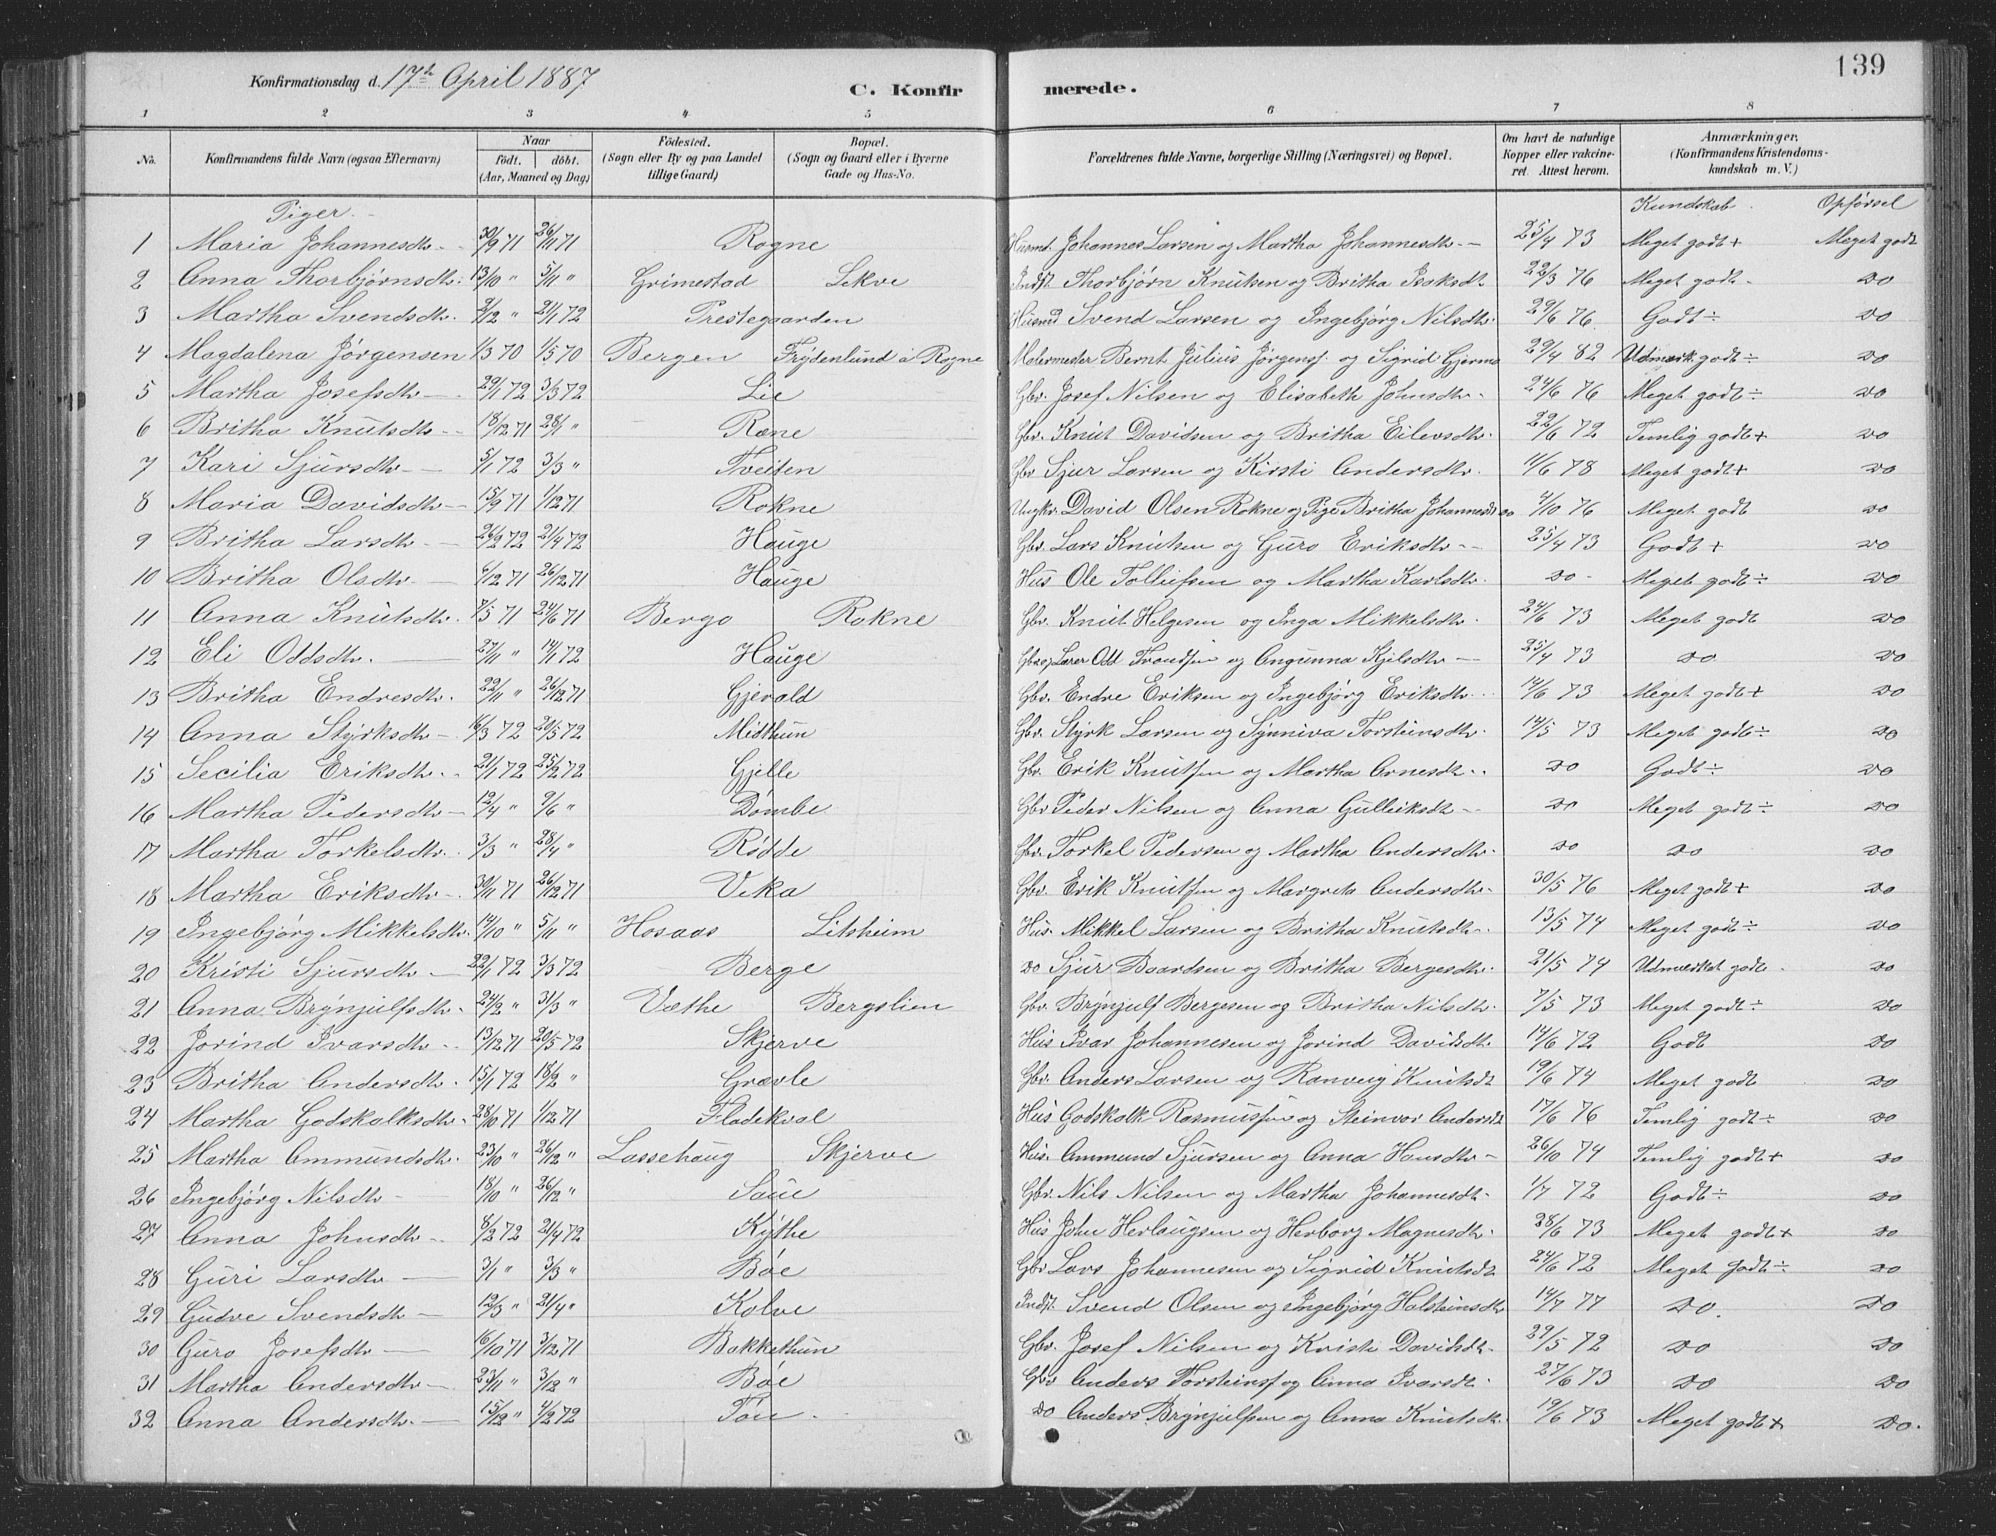 139
Konfirmationsdag d. 17de April 1887
C. Konfirmerede.
1 2 3 4 5 6 7 8
No. Konfirmandens fulde Navn (ogsaa Efternavn) Naar födt. döbt. (Aar, Maaned og Dag) Födested. (Sogn eller By og paa Landet tillige Gaard) Bopæl. (Sogn og Gaard eller i Byerne Gade og Hus-No. Forældrenes fulde Navne, borgerlige Stilling (Næringsvei) og Bopæl. Om havt de naturlige Kopper eller vakcineret. Attest herom. Anmærkninger. (Konfirmandens Kristendomskundskab m. V.)
Piger. Kundskab. Opførsel
1 Maria Johannesdtr. 30/9 71 26/11 71 Rogne Husmd. Johannes Larsen og Martha Johannesdtr. 25/4 73 Meget godt + Meget godt
2 Anna Thorbjørnsdtr. 13/10 " 5/11 " Grimestad Lekve Indst. Thorbjørn Knutsen og Britha Isaksdt 22/3 76 Meget godt do
3 Martha Svendsdtr. 2/12 " 21/1 72 Prestegaarden Husmd Svend Larsen og Ingebjørg Nilsdtr. 29/6 76. Godt ÷ do
4 Magdalena Jørgensen 1/3 70 1/5 70 Bergen Frydenlund á Rogne Malermester Bernt Julius Jørgens. og Sigrid Gjerme 29/4 82 Udmærk. godt ÷ do
5 Martha Josefsdtr. 29/1 72 3/3 72 Lie Gbr. Josef Nilsen og Elisabeth Johnsdtr. 24/6 76 Meget godt ÷ do
6 Britha Knutsdtr. 18/12 71 28/1 " Rene Gbr. Knut Davidsen og Britha Eilevsdtr. 22/6 72 Temlig godt + do
7 Kari Sjursdtr. 5/1 72 3/3 " Tveiten Gbr Sjur Larsen og Kirsti Andersdtr. 11/6 78 Meget godt + do
8 Maria Davidsdtr. 15/9 71 1/12 71 Rokne Ungkr. David Olsen Rokne og Pige Britha Johannesdt do 4/10 76 Meget godt do
9 Britha Larsdtr. 26/2 72 21/4 72 Hauge Gbr. Lars Knutsen og Guro Eriksdtr. 25/4 73 Godt + do
10 Britha Olsdtr. 6/12 71 26/12 71 Hauge Hus Ole Tolleifsen og Martha Karlsdtr. do Meget godt ÷ do
11 Anna Knutsdtr. 7/5 71 24/6 71 Bergo Rokne Gbr. Knut Helgesen og Inga Mikkelsdtr. 24/6 73 Meget godt do
12 Eli Oddsdtr. 27/11 " 14/1 72 Hauge Gbr og Lærer Odd Trondsen og Angunna Kjelsdtr 25/4 73 do do
13 Britha Endresdtr. 22/11 " 26/12 71 Gjerald Gbr. Endre Eriksen og Ingebjørg Eriksdtr. 14/6 73 Meget godt + do
14 Anna Styrksdtr. 16/3 72 20/5 72 Midthun Gbr. Styrk Larsen og Synniva Torsteinsdtr. 14/5 73 Meget godt ÷ do
15 Secilia Eriksdtr. 21/1 72 25/2 72 Gjelle Gbr. Erik Knutsen og Martha Arnesdt. do Godt ÷ do
16 Martha Pedersdtr. 12/4 " 9/6 " Dømbe Gbr Peder Nilsen og Anna Gulleiksdt do Meget godt ÷ do
17 Martha Torkelsdtr. 3/3 " 28/4 " Rødde Gbr. Torkel Pedersen og Martha Andersdtr. do do do
18 Martha Eriksdtr. 30/11 71 26/12 71 Veka Gbr. Erik Knutsen og Margreta Andersdtr. 30/5 76 Meget godt + do
19 Ingebjørg Mikkelsdtr. 14/10 " 5/11 " Hosaas Litsheim Hus. Mikkel Larsen og Britha Knutsdtr. 13/5 74 Meget godt ÷ do
20 Kristi Sjursdtr. 22/1 72 3/3 72 Berge do Sjur Baardsen og Britha Bergesdtr. 21/5 74 Udmærket godt do
21 Anna Brynjulfsdtr. 24/2 " 31/3 " Væthe Bergslien Gbr. Brynjulf Bergesen og Britha Nilsdtr. 7/5 73 Meget godt ÷ do
22 Jorind Ivarsdtr. 13/12 71 20/5 72 Skjerve Hus Ivar Johannesen og Jorind Davidsdt. 14/6 72 Godt do
23 Britha Andersdtr. 15/1 72 18/2 " Grævle Gbr. Anders Larsen og Ranveig Knutsdt 19/6 74 Meget godt do
24 Martha Godskalksdtr. 28/10 71 1/12 71 Fladekval Hus Godskalk Rasmussen og Steinvor Andersdt 17/6 76 Temlig godt ÷ do
25 Martha Ammundsdtr. 23/10 " 26/12 " Lassehaug Skjerve Hus. Ammund Sjursen og Anna Hansdtr 26/10 74 Temlig godt + do
26 Ingebjørg Nilsdtr 18/10 " 26/12 " Saue Gbr. Nils Nilsen og Martha Johannesdt. 1/7 72 Godt ÷ do
27 Anna Johnsdtr. 8/2 72 21/4 72 Kythe Hus John Herlaugsen og Herborg Magnesdtr. 28/6 73 Meget godt + do
28 Guri Larsdtr. 3/1 " 3/3 " Bøe Gbr Lars Johannesen og Sigrid Knutsdt 24/6 72 Meget godt ÷ do
29 Gudve Svendsdtr 12/3 " 21/4 " Kolve Indst. Svend Olsen og Ingebjørg Halsteinsdtr 14/7 77 do. do
30 Guro Josefsdtr. 16/10 71 3/12 71 Bakkethun Gbr. Josef Nilsen og Kristi Davidsdt. 29/5 72 do do
31 Martha Andersdtr. 23/11 " 3/12 " Bøe Gbr Anders Torsteins. og Anna Ivarsdt. 27/6 73 do do
32 Anna Andersdtr. 15/12 " 4/2 72 Tøn do Anders Brynjulfsen og Anna Knutsdt. 19/6 73 Meget godt + do.